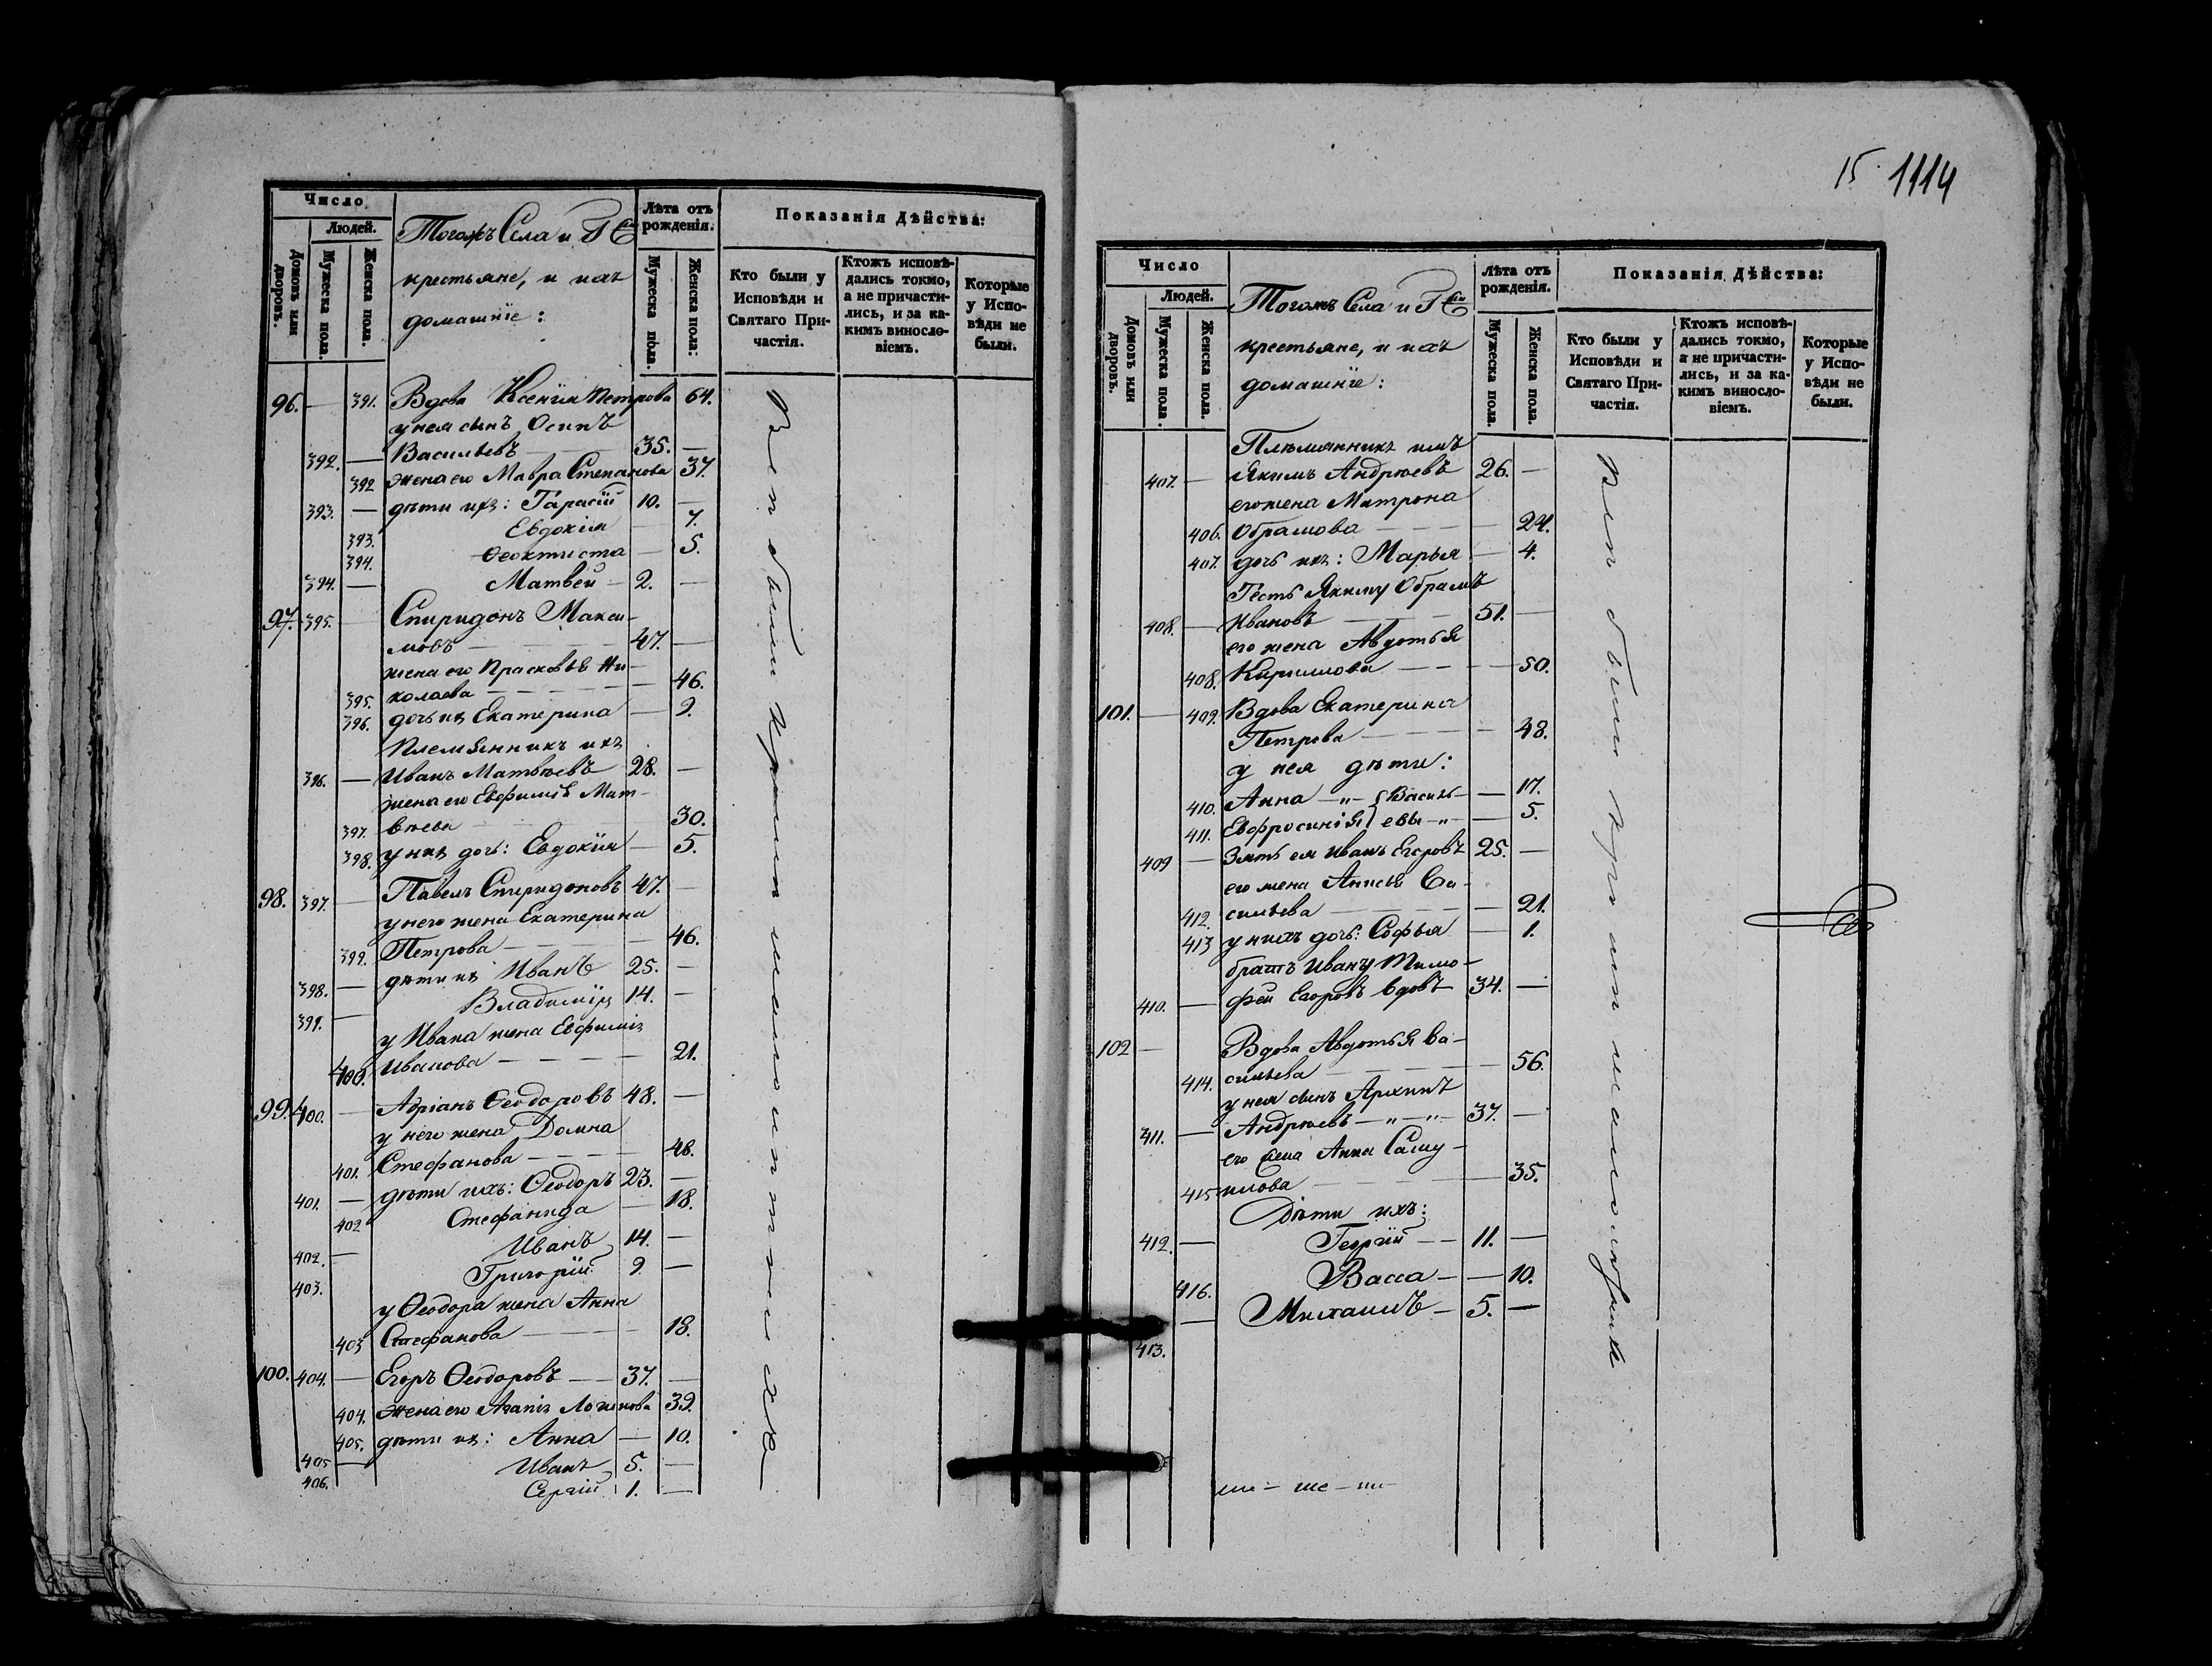 Число
Людей.
Домовъ или дворовъ.
Мужеска пола.
Женска пола.
Тогожъ Села и
крестьяне, и ихъ
домашніе:
Лѣта отъ рожденія.
Мужеска пола.
Женска пола:
Показанія Дѣйства:
Кто были у Исповѣди и Святаго Причастія.
Ктожъ исповѣдались токмо, а не причастились, и за какимъ винословіемъ.
Которые у Исповѣди не были.
96. — 391. Вдова Ксенія Петрова 64.
у нея сынъ Осипъ
392. — Васильевъ 35. —
392 жена его Мавра Степанова 37.
393. — дѣти ихъ: Гарасій 10. —
393. Евдокія — 7.
394. Ѳеоктиста — 5.
394. — Матвей — 2. —
97. 395. — Спиридонъ Макси-
мовъ — 47. —
жена его Прасковья Ни-
395. колаева — 46.
396. дочь их Екатерина — 9.
Племянникъ ихъ
396. — Иванъ Матвѣевъ 28. —
жена его Евфимія Мат-
397. вѣева 30.
398. у них дочь: Евдокія — 5.
98. 397. — Павелъ Спиридоновъ 47. —
у него жена Екатерина
399. Петрова — 46.
398. — дѣти их Иванъ 25. —
399. — Владиміръ 14. —
у Ивана жена Евфимія
400. Иванова — 21.
99. 400. — Адріанъ Ѳеодоровъ 48. —
у него жена Домна
401. Стефанова — 48.
401. — дѣти ихъ: Ѳеодоръ 23. —
402 Стефанида — 18.
402. — Иванъ 14. —
403. Григорій 9. —
у Ѳеодора жена Анна
403 Стефанова — 18.
100. 404. — Егоръ Ѳеодоровъ — 37. —
404. жена его Агапія Логинова 39.
405. дѣти их: Анна — 10.
405 — Иванъ 5. —
406. Сергій 1. —
15. 1114
Число
Людей.
Домовъ или дворовъ.
Мужеска пола
Женска пола.
Тогожъ Села и
крестьяне, и ихъ
домашніе:
Лѣта отъ рожденія.
Мужеска пола.
Женска пола.
Показанія Дѣйства:
Кто были у Исповѣди и Святаго Причастія.
Ктожъ исповѣдались токмо, а не причастились, и за какимъ винословіемъ.
Которые у Исповѣди не были.
Племянникъ имъ
407. — Якимъ Андрѣевъ 26. —
его жена Матрона
406. Обрамова — 24.
407. дочь их: Марья — 4.
Тесть Якиму Обрамъ
408. — Ивановъ 51. —
его жена Авдотья
408. Кирилова — 50.
101. — 409. Вдова Екатерина
Петрова — 48.
у нея дѣти:
410. Анна — „ — Василь- — 17.
411. Евфросинія евы — „ — 5.
409 — Зять ея Иванъ Егоровъ 25. —
его жена Анисья Ва-
412. сильева — 21.
413 у нихъ дочь: Софья — 1.
братъ Ивану Тимо-
410. — фей Егоровъ вдовъ 34. —
102 — Вдова Авдотья Ва-
414. сильева — 56.
у нея сынъ Архипъ
411. — Андрѣевъ — „ — „ — 37. —
его жена Анна Саму-
415 илова — 35.
Дѣти ихъ:
412. — Георгій — 11. —
416. Васса — — 10.
413. — Михаилъ — 5. —